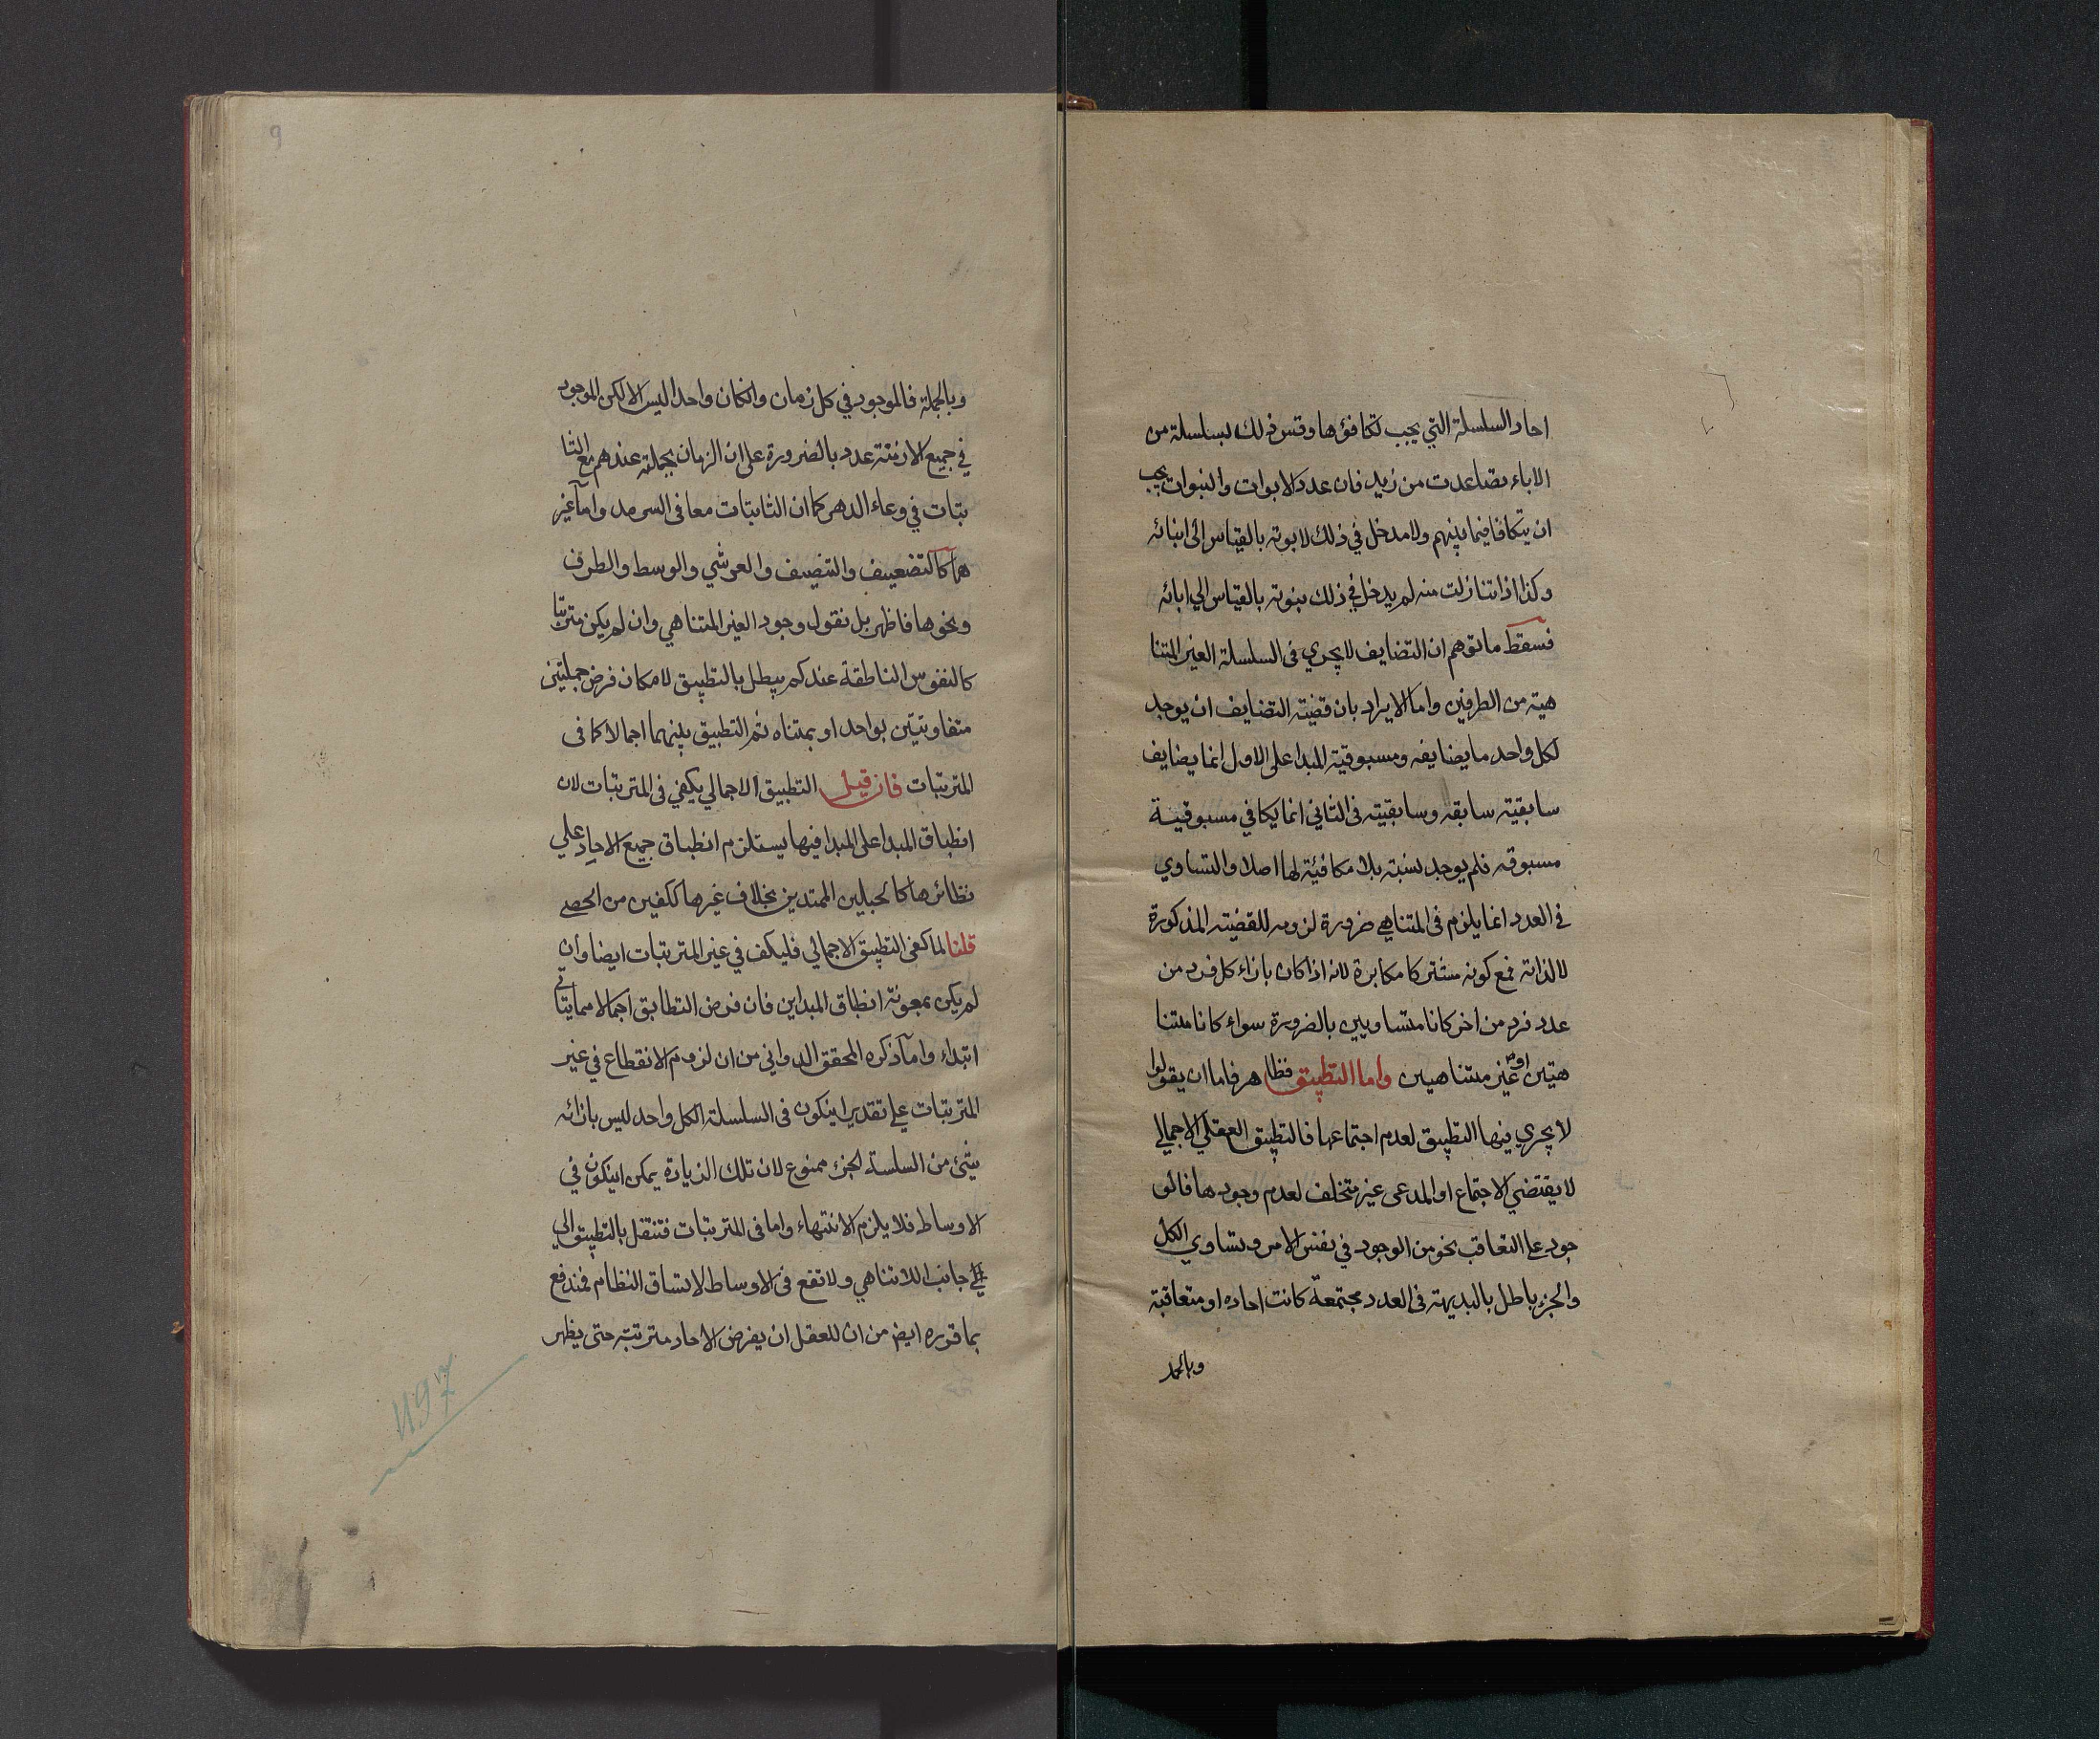 احاد السلسلة التي يجب تكافؤها وقس ذلك لسلسلة من
الاباء تصاعدت من زيد فان عدد الابوات والبنوات يجب
ان يتكافا فيما بينهم ولا مدخل في ذلك لابوته بالقياس الى ابنائه
وكذا اذا تنازلت منه لم يدخل في ذلك بنوته بالقياس الي ابائه
فسقط ما توهم ان التضايف لا يجري في السلسلة الغير المتنا
هية من الطرفين واما الايراد بان قضية التضايف ان يوجد
لكل واحد ما يضايفه ومسبوقية المبدا على الاول انما يضايف
سابقية سابقه وسابقيته في الثاني انما يكافي مسبوقية
مسبوقه فلم يوجد نسبته بلا مكافية لها اصلا والتساوي
في العدد انما يلزم في المتناهي ضرورة لزومه للقضية المذكورة
لا لذاته فمع كونه مشتركا مكابرة لانه اذا كان بازاء كل فرد من
عدد فرد من اخر كانا متساويين بالضرورة سواء كانا متنا
هيين او غير متناهيين واما التطبيق فظاهر فاما ان يقولوا
لا يجري فيها التطبيق لعدم اجتماعها فالتطبيق العقلي الاجمالي
لا يقتضي الاجتماع او المدعى غير متخلف لعدم وجودها فالو
جود على التعاقب نحو من الوجود في نفس الامر وتساوي الكل
والجزء باطل بالبديهة في العدد مجتمعة كانت احاده او متعاقبة
وبالجمله
9
وبالجملة فالموجود في كل زمان وان كان واحدا ليس الا لكن الموجود
في جميع الازمنة عدد بالضرورة على ان الزمان بجملته عندهم مع الثا
بتات في وعاء الدهر كما ان الثابتات معا في السرمد واما غير
ها كالتضعيف والتنصيف والعرشي والوسط والطرف
ونحوها فاظهر بل نقول وجود الغير المتناهي وان لم يكن مترتبا
كالنفوس الناطقة عندكم يبطل بالتطبيق لامكان فرض جملتين
متفاوتتين بواحد او بمتناه ثم التطبيق بينهما اجمالا كما في
المترتبات فان قيل التطبيق الاجمالي يكفي في المترتبات لان
انطباق المبدا على المبدا فيها يستلزم انطباق جميع الاحاد علي
نظائرها كالحبلين الممتدين بخلاف غيرها ككفين من الحصى
قلنا لما كفى التطبيق الاجمالي فليكف في غير المترتبات ايضا وان
لم يكن بمعونة انطباق المبداين فان فرض التطابق اجمالا مما يتاتى
ابتداء واما ما ذكره المحقق الدواني من ان لزوم الانقطاع في غير
المترتبات على تقدير ان يكون في السلسلة الكل واحد ليس بازائه
شئ من السلسلة الجزء ممنوع لان تلك الزيادة يمكن ان يكون في
الاوساط فلا يلزم الانتهاء واما في المترتبات فتنتقل بالتطبيق الي
جانب اللا تناهي ولا تقع في الاوساط لاتساق النظام فمندفع
بما قرره ايضا من ان للعقل ان يفرض الاحاد مترتبة حتى يظهر
1197